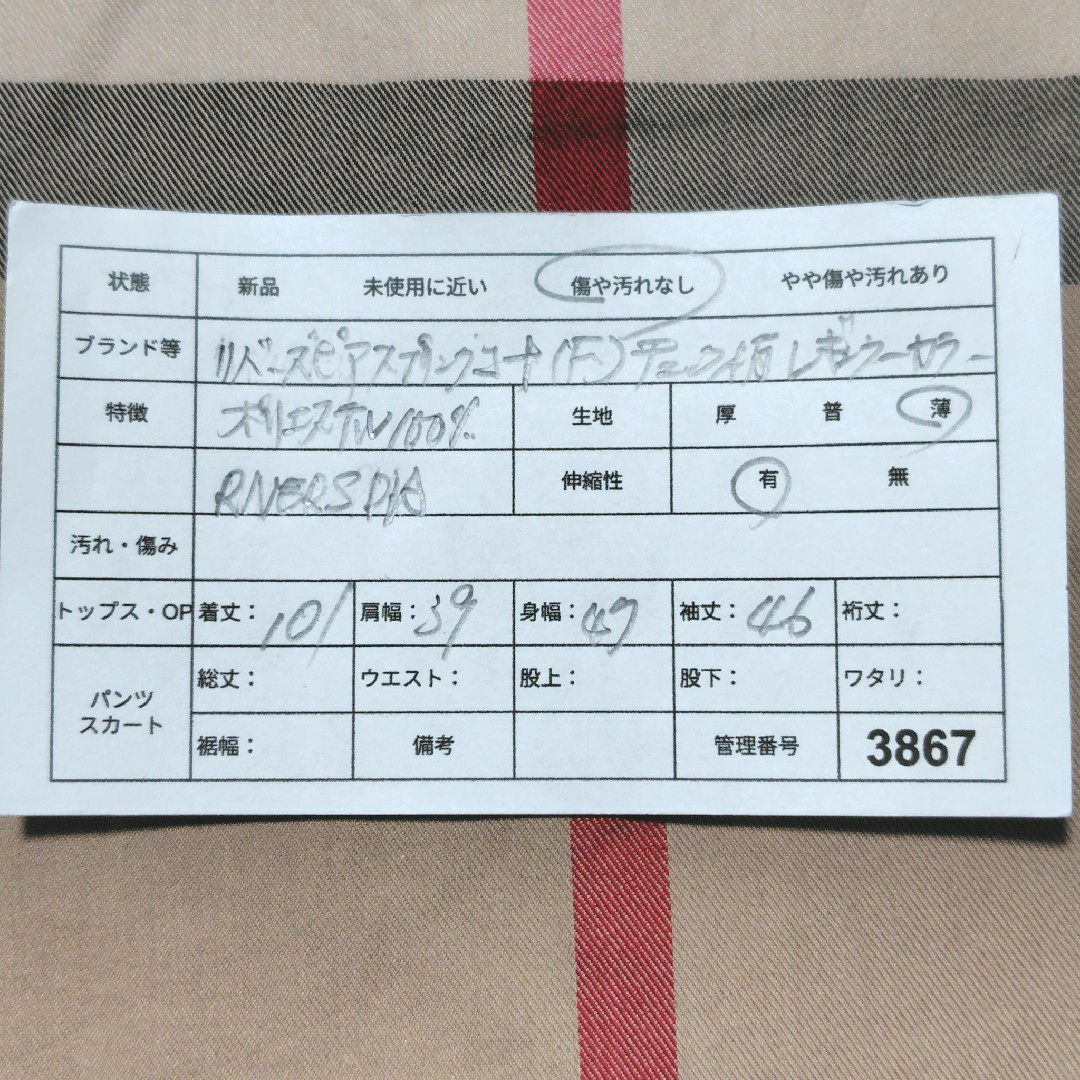 状態 新品 未使用に近い 傷や汚れなし やや傷や汚れあり
ブランド等 リバーズピア スプリングコート(F) チェック柄 レギュラーカラー
特徴 ポリエステル100% 生地 厚 普 薄
RIVERS PIA 伸縮性 有 無
汚れ・傷み
トップス・OP 着丈: 101 肩幅: 39 身幅: 49 袖丈: 46 裄丈:
パンツ スカート 総丈: ウエスト: 股上: 股下: ワタリ:
裾幅: 備考 管理番号 3867